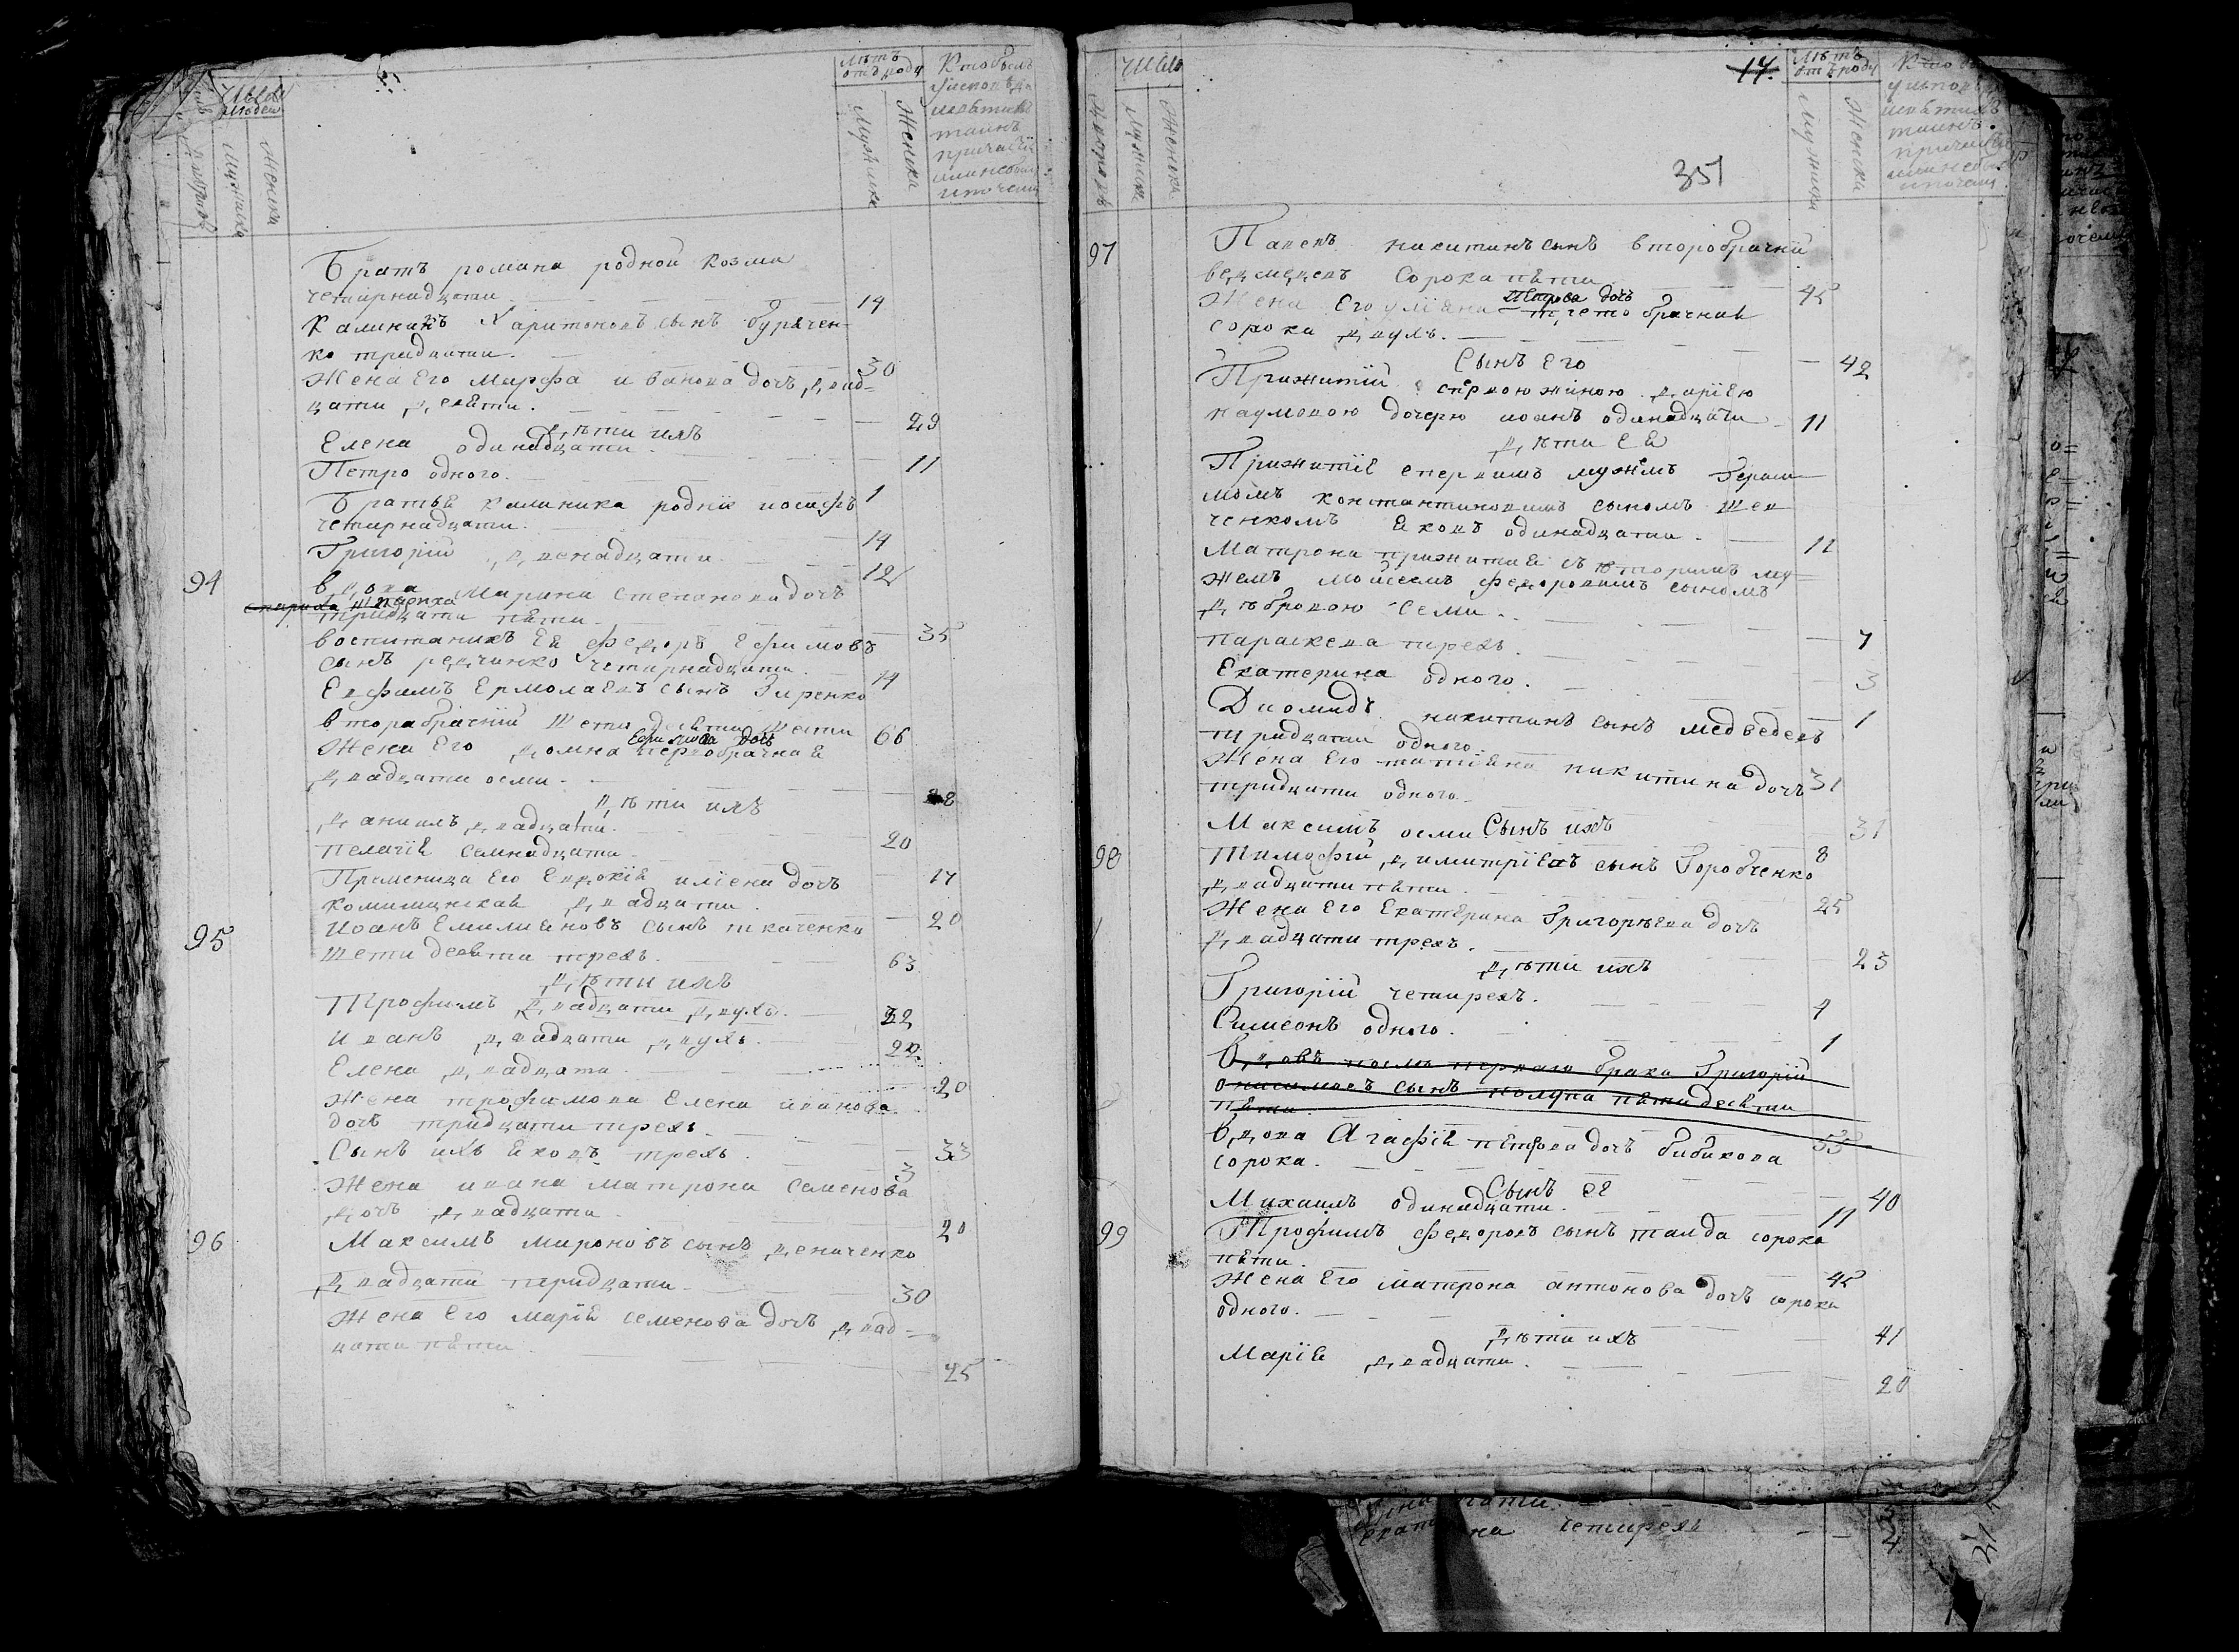 Число
людей
лѣтъ
отъ роду
мужиска
женска
мужиска
женска
Братъ романа родной козма
четирнадцати 14
Калиникъ Харитоновъ сынъ бурячен-
ко тридцати. 30
Жена Его Марфа иванова дочь, двад-
цати девяти. 29
дѣти ихъ
Елена одинадцати 11
Петро одного. 1
Братья калиника роднїе иосифъ
четирнадцати. 14
Григорїй двенадцати 12
94 вдова Марина степанова дочь
тридцати пяти 35
воспитаникъ Ея федоръ Ефимовъ
сынъ редчинко четирнадцати. 14
Евфимъ Ермолаевъ сынъ Зиренко
второбрачнїй шетидесяти шести 66
Жена Его домна первобрачная
двадцати осми. 28
дѣти ихъ
данилъ двадцати. 20
пелагїя семнадцати 17
Племеница Его Евдокїя дочь
двадцати. 20
95 иоанъ Емилияновъ сынъ ткаченко
шетидесяти трехъ. 63
дѣти ихъ
Трофимъ двадцати двухъ. 22
иванъ двадцати двухъ. 22
Елена двадцати 20
Жена трофимова Елена иванова
дочь тридцати трехъ 33
Сынъ ихъ яковъ трехъ. 3
Жена ивана матрона семенова
дочь двадцати 20
96 Максимъ мироновъ сынъ дениченко
двадцати тридцати. 30
Жена Его марїя семенова дочь двад-
цати пяти 25
число
мужиска
женска
17.
351
лѣтъ
отъ роду
мужиска
женска
97 Павелъ никитинъ сынъ второбрачнїй
ведмедевъ сорока пяти 45
Петрова дочь
Жена Его улїяна третобрачная
сорока двухъ. 42
Сынъ его
Прижитїй спервою женою дарїею
наумовою дочерю иоанъ одинадцати 11
дѣти ея
Прижитїе спервимъ мужемъ Гераси
момъ константиновимъ сыномъ шев
ченкомъ яковъ одинадцати. 11
Матрона прижитая съ вторимъ му-
жемъ Моисеемъ федоровимъ сыномъ
дѣбровою семи. 7
параскева трехъ. 3
Екатерина одного. 1
Диомидъ никитинъ сынъ медведевъ
тридцати одного. 31
Жена Его татїяна никитина дочь
тридцати одного. 31
Сынъ ихъ
Максимъ осми 8
98 тимофїй димитрїевъ сынъ Горобченко
двадцати пяти. 25
Жена Его Екатерина Григорьева дочь
двадцати трехъ. 23
дѣти ихъ
Григорїй четирехъ. 4
Симеонъ одного. 1
Вдовъ послѣ перваго брака Григорїй
онисимовъ сынъ колупа пятидесяти
пяти. 55
Вдова Агафїя петрова дочь бибикова
сорока. 40
Сынъ ее
Михаилъ одинадцати. 11
99 Трофимъ федоровъ сынъ талда сорока
пяти. 45
Жена Его матрона антонова дочь сорока
одного. 41
дѣти ихъ
Марїя двадцати. 20
четирехъ